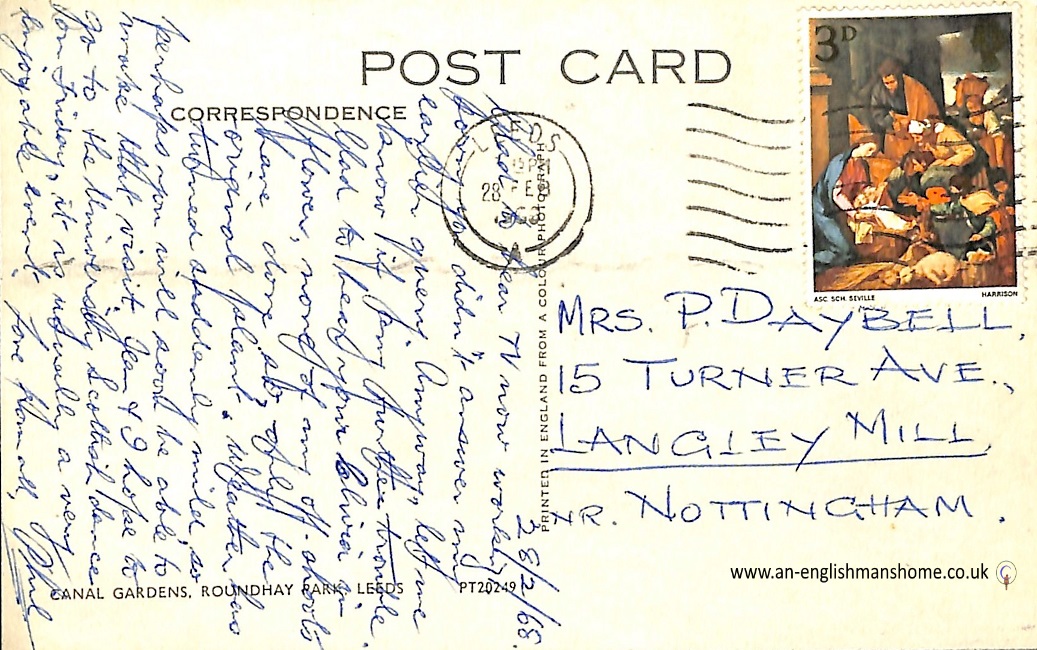 POST CARD
CORRESPONDENCE
LEEDS
28 FEB
1968
3D
ASC. SCH. SEVILLE
HARRISON
28/2/68.
Glad to hear TV now working,
Sorry you didn't answer my
earlier query. Anyway, let me
know if any further trouble.
Glad to hear your Clivia in
flower, none of my off-shoots
have done so, only the
original plant. Weather has
turned suddenly mild, so
perhaps you will soon be able to
make that visit. Jean & I hope to
go to the University Scottish dance
on Friday, it is usually a very
enjoyable event. Love from all, Phil
PRINTED IN ENGLAND FROM A COLOUR PHOTOGRAPH
MRS. P. DAYBELL,
15 TURNER AVE.,
LANGLEY MILL,
NR. NOTTINGHAM.
www.an-englishmanshome.co.uk ©
CANAL GARDENS, ROUNDHAY PARK, LEEDS PT20249